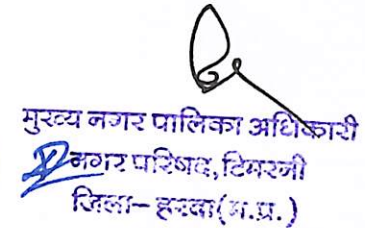 मुख्य नगर पालिका अधिकारी
नगर परिषद, टिमरनी
जिला– हरदा (म.प्र.)